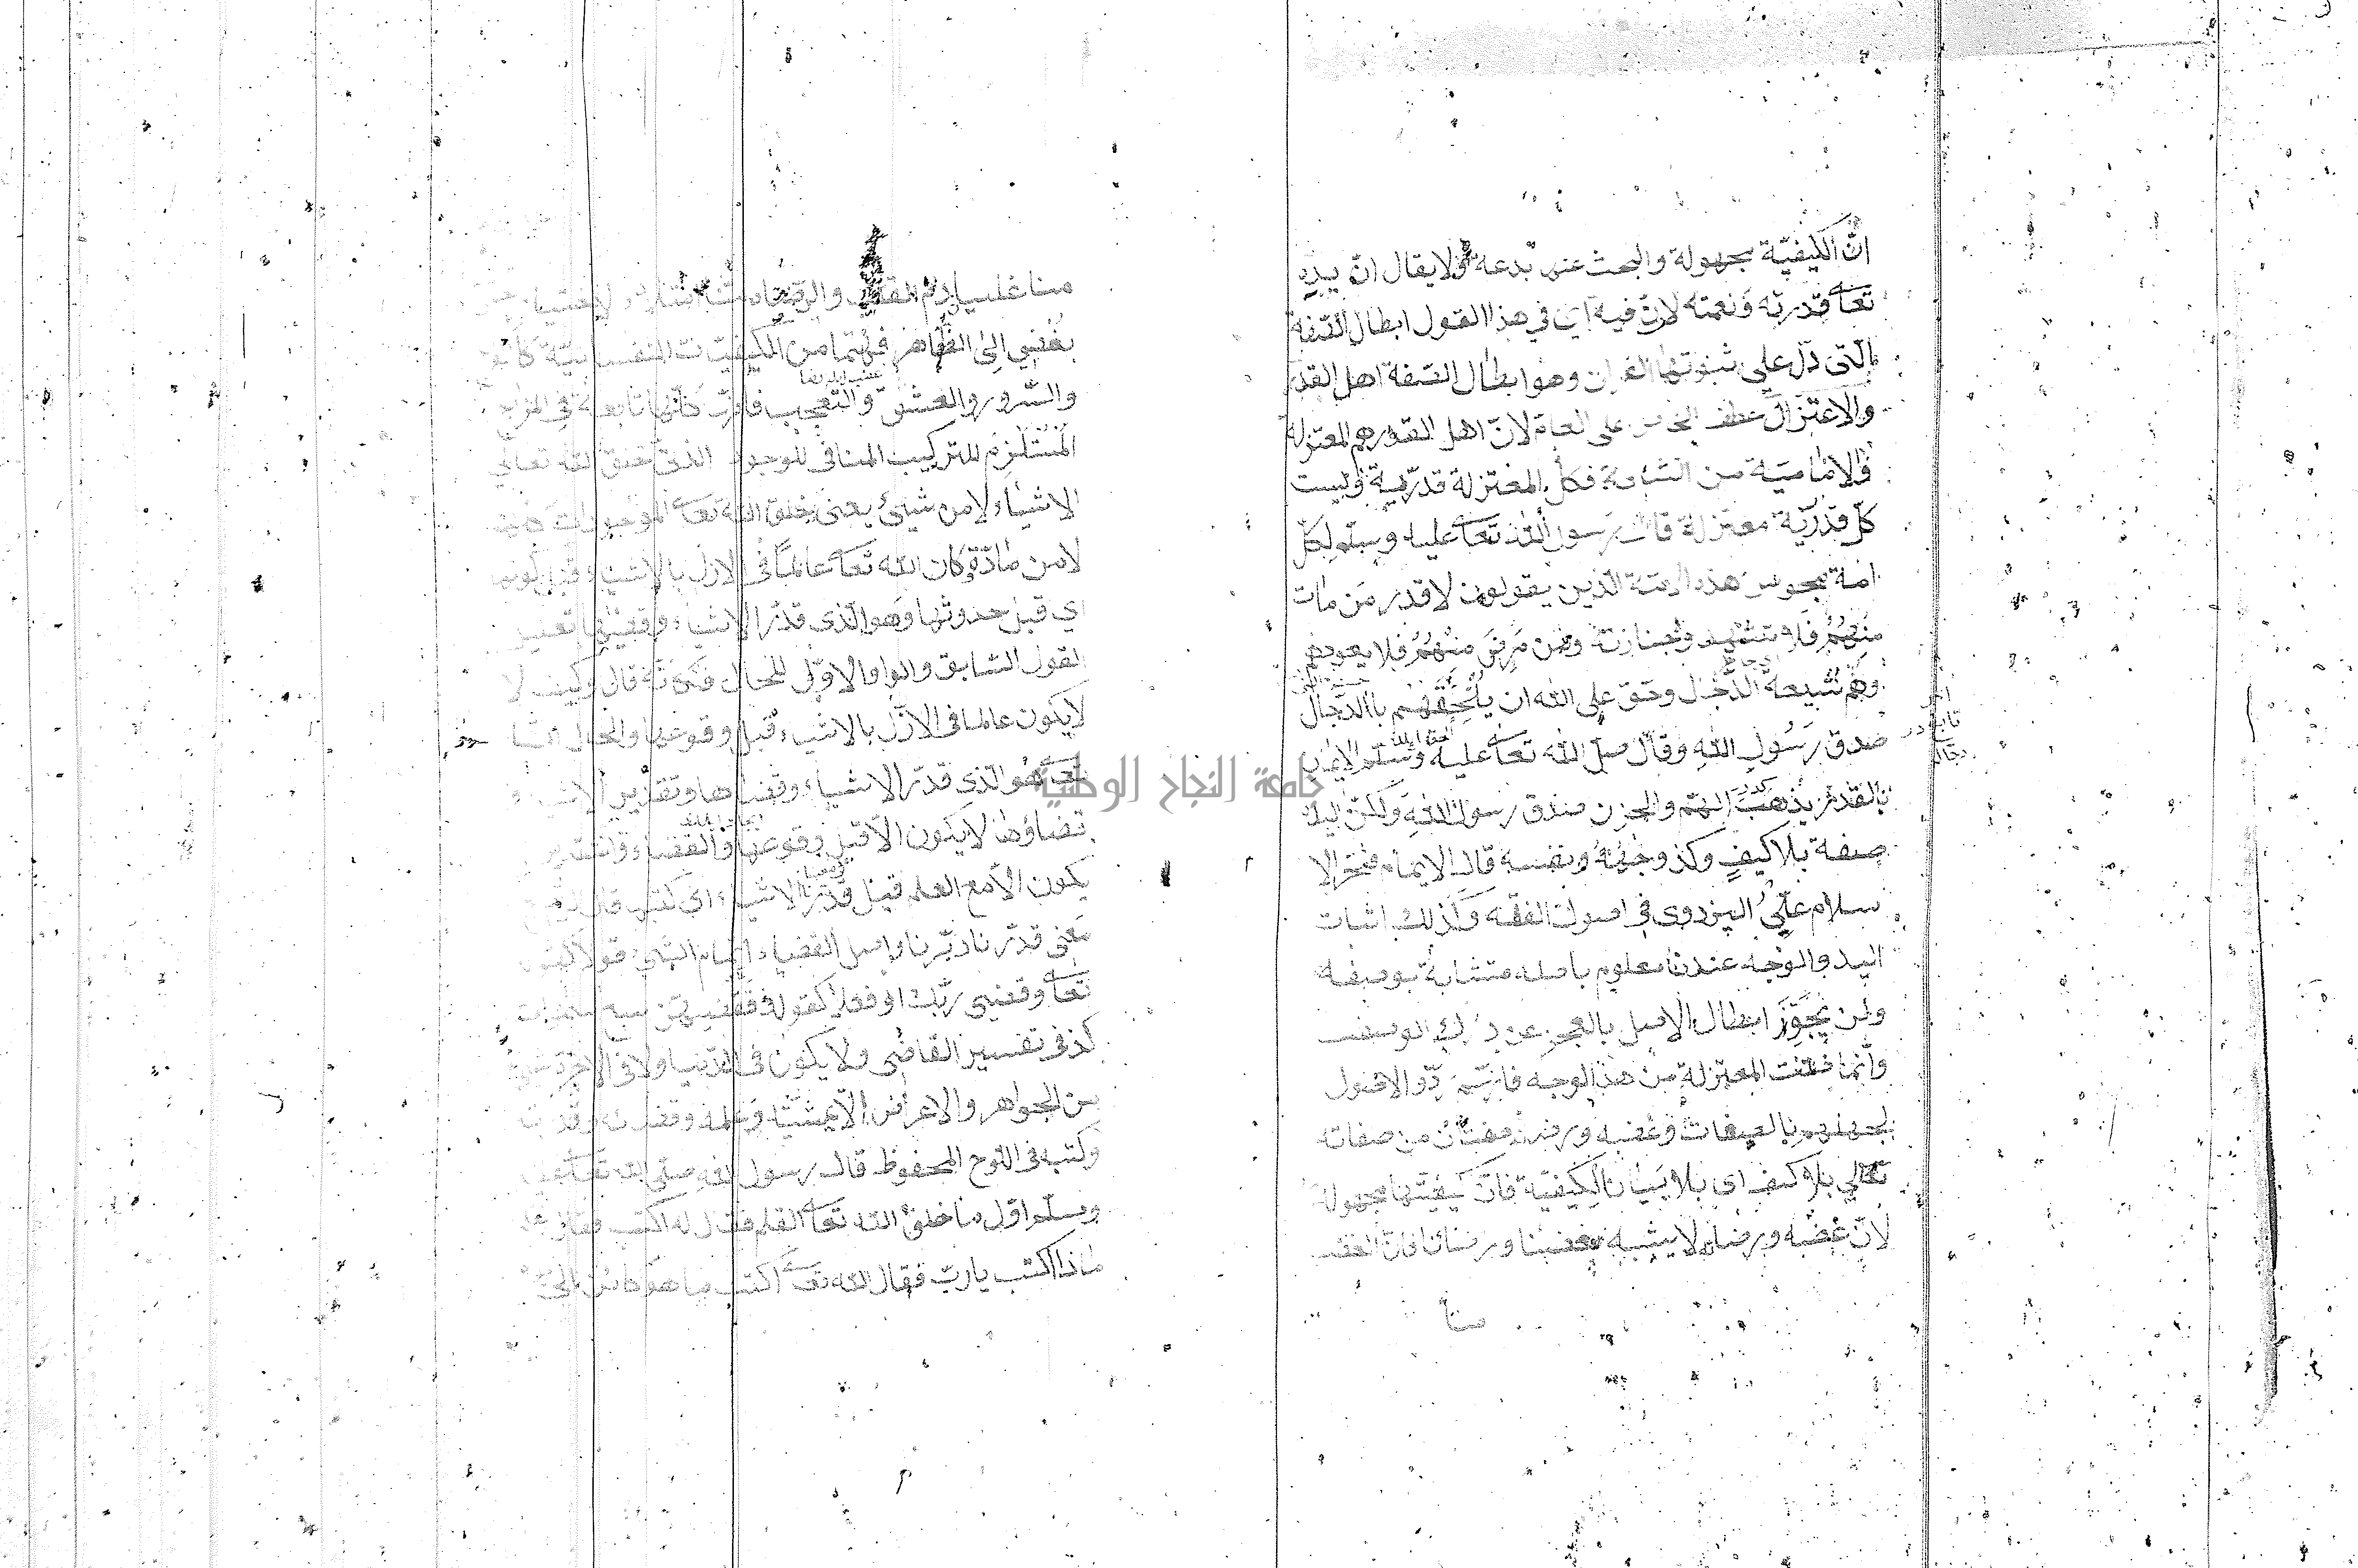 انّ الكيفيّة مجهولة والبحث عنه بدعة ولا يقال انّ يده
تعا قدرته ونعمته لانّ فيه اى في هذا القول ابطال الصّفة
الّتى دلّ على ثبوتها القران وهو ابطال الصّفة اهل القدر
والاعتزال عطف الخاص على العام لانّ اهل القدر هم المعتزلة
والامامية من الشيعة فكل المعتزلة قدرية وليست
كلّ قدريّة معتزلة قال رسول الله تعا عليه وسلم لكل
امة مجوس هذه الامة الّذين يقولون لا قدر من مات
منهم فلا تشهدو جنازته ومن مرض منهم فلا يعودهم
وهم شيعة الدّجال وحق على الله ان يلحقهم باالدّجال
صدق رسول الله وقال صلى الله تعا عليه وسلم الايمان
بالقدر يذهب الهم والحزن صدق رسول الله ولكن اليد
صفة بلا كيف وكذ وجهه ونفسه قال الايمام فخر الا
سلام علىّ البزدوى في اصول الفقه وكذلك اثبات
اليد والوجه عندنا معلوم باصله متشابة بوصفه
ولن يجوّز ابطال الاصل بالعجز عن درك الوصف
وانّما ضلت المعتزلة من هذا الوجه فانهم ردّو الاصول
لجهلهم بالصفات وغضبه ورضاه صفتان من صفاته
تعالى بلا كيف اى بلا بيان الكيفيّة فانّ كيفيتها مجهولة
لانّ غضبه ورضاه لا يشبه بغضبنا ورضانا فانّ الغضب
منا
منا غليان دم القلب والرضاء
يفضى الى الظاهر فهما من الكيفيّات النفسانيّة
والسّرور والعشق والتعجب فانّ كلّها تابعة في المزاج
المستلزم للتركيب المنافى للوجوب الذاتى خلق الله تعالى
الاشياء لا من شيئ يعنى خلق الله تعا الموجودات
لا من مادّة وكان الله تعا عالماً في الازل بالاشياء قبل كونها
اى قبل حدوثها وهو الّذى قدّر الاشياء وقضيها
القول السّابق والواو الاوّل للحال فكانّه قال وكيف لا
لا يكون عالما في الازل بالاشياء قبل وقوعها والحال
هو الّذى قدّر الاشياء وقضاها وتقدير الاشياء و
قضاؤها لا يكون الاّ قبل وقوعها والقضاء والتقدير
يكون الاّ مع العلم قيل قدّر الاشياء اى كتبه قال
معنى قدّرنا دبّرنا واصل القضاء اتمام الشئ قولا كقوله
تعا وقضى ربّك او فعلا كقوله فقضيهنّ سبع سموات
كذ في تفسير القاضى ولا يكون في الدّنيا ولا في الاخرة شئ
من الجواهر والاعراض الاّ بمشيّته وعلمه وقضائه وقدرته
وكتبه في اللّوح المحفوظ قال رسول الله صلى الله تعا عليه
وسلم اوّل ما خلق الله تعا القلم فقال له اكتب فقال
ماذا اكتب يا ربّ فقال الله تعا اكتب ما هو كائن الى
جامعة النجاح الوطنية